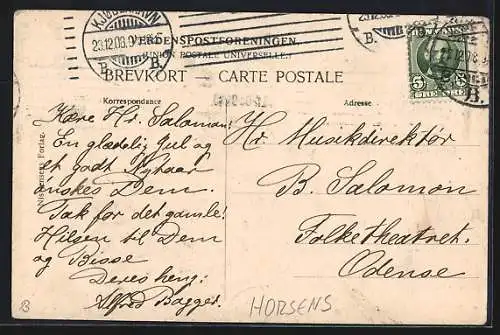 KJØBENHAVN
23.12.08.
B.
VERDENSPOSTFORENINGEN.
(UNION POSTALE UNIVERSELLE)
BREVKORT — CARTE POSTALE
5
B.
Korrespondance
Adresse
Kære Hr. Salomon!
En glædelig Jul og
et godt Nytaar
ønskes Dem.
Tak for det gamle!
Hilsen til Dem
og Bisse
Deres heng:
Alfred Bagger.
Hr Musikdirektør
B. Salomon
Folketheatret.
Odense
HORSENS
B